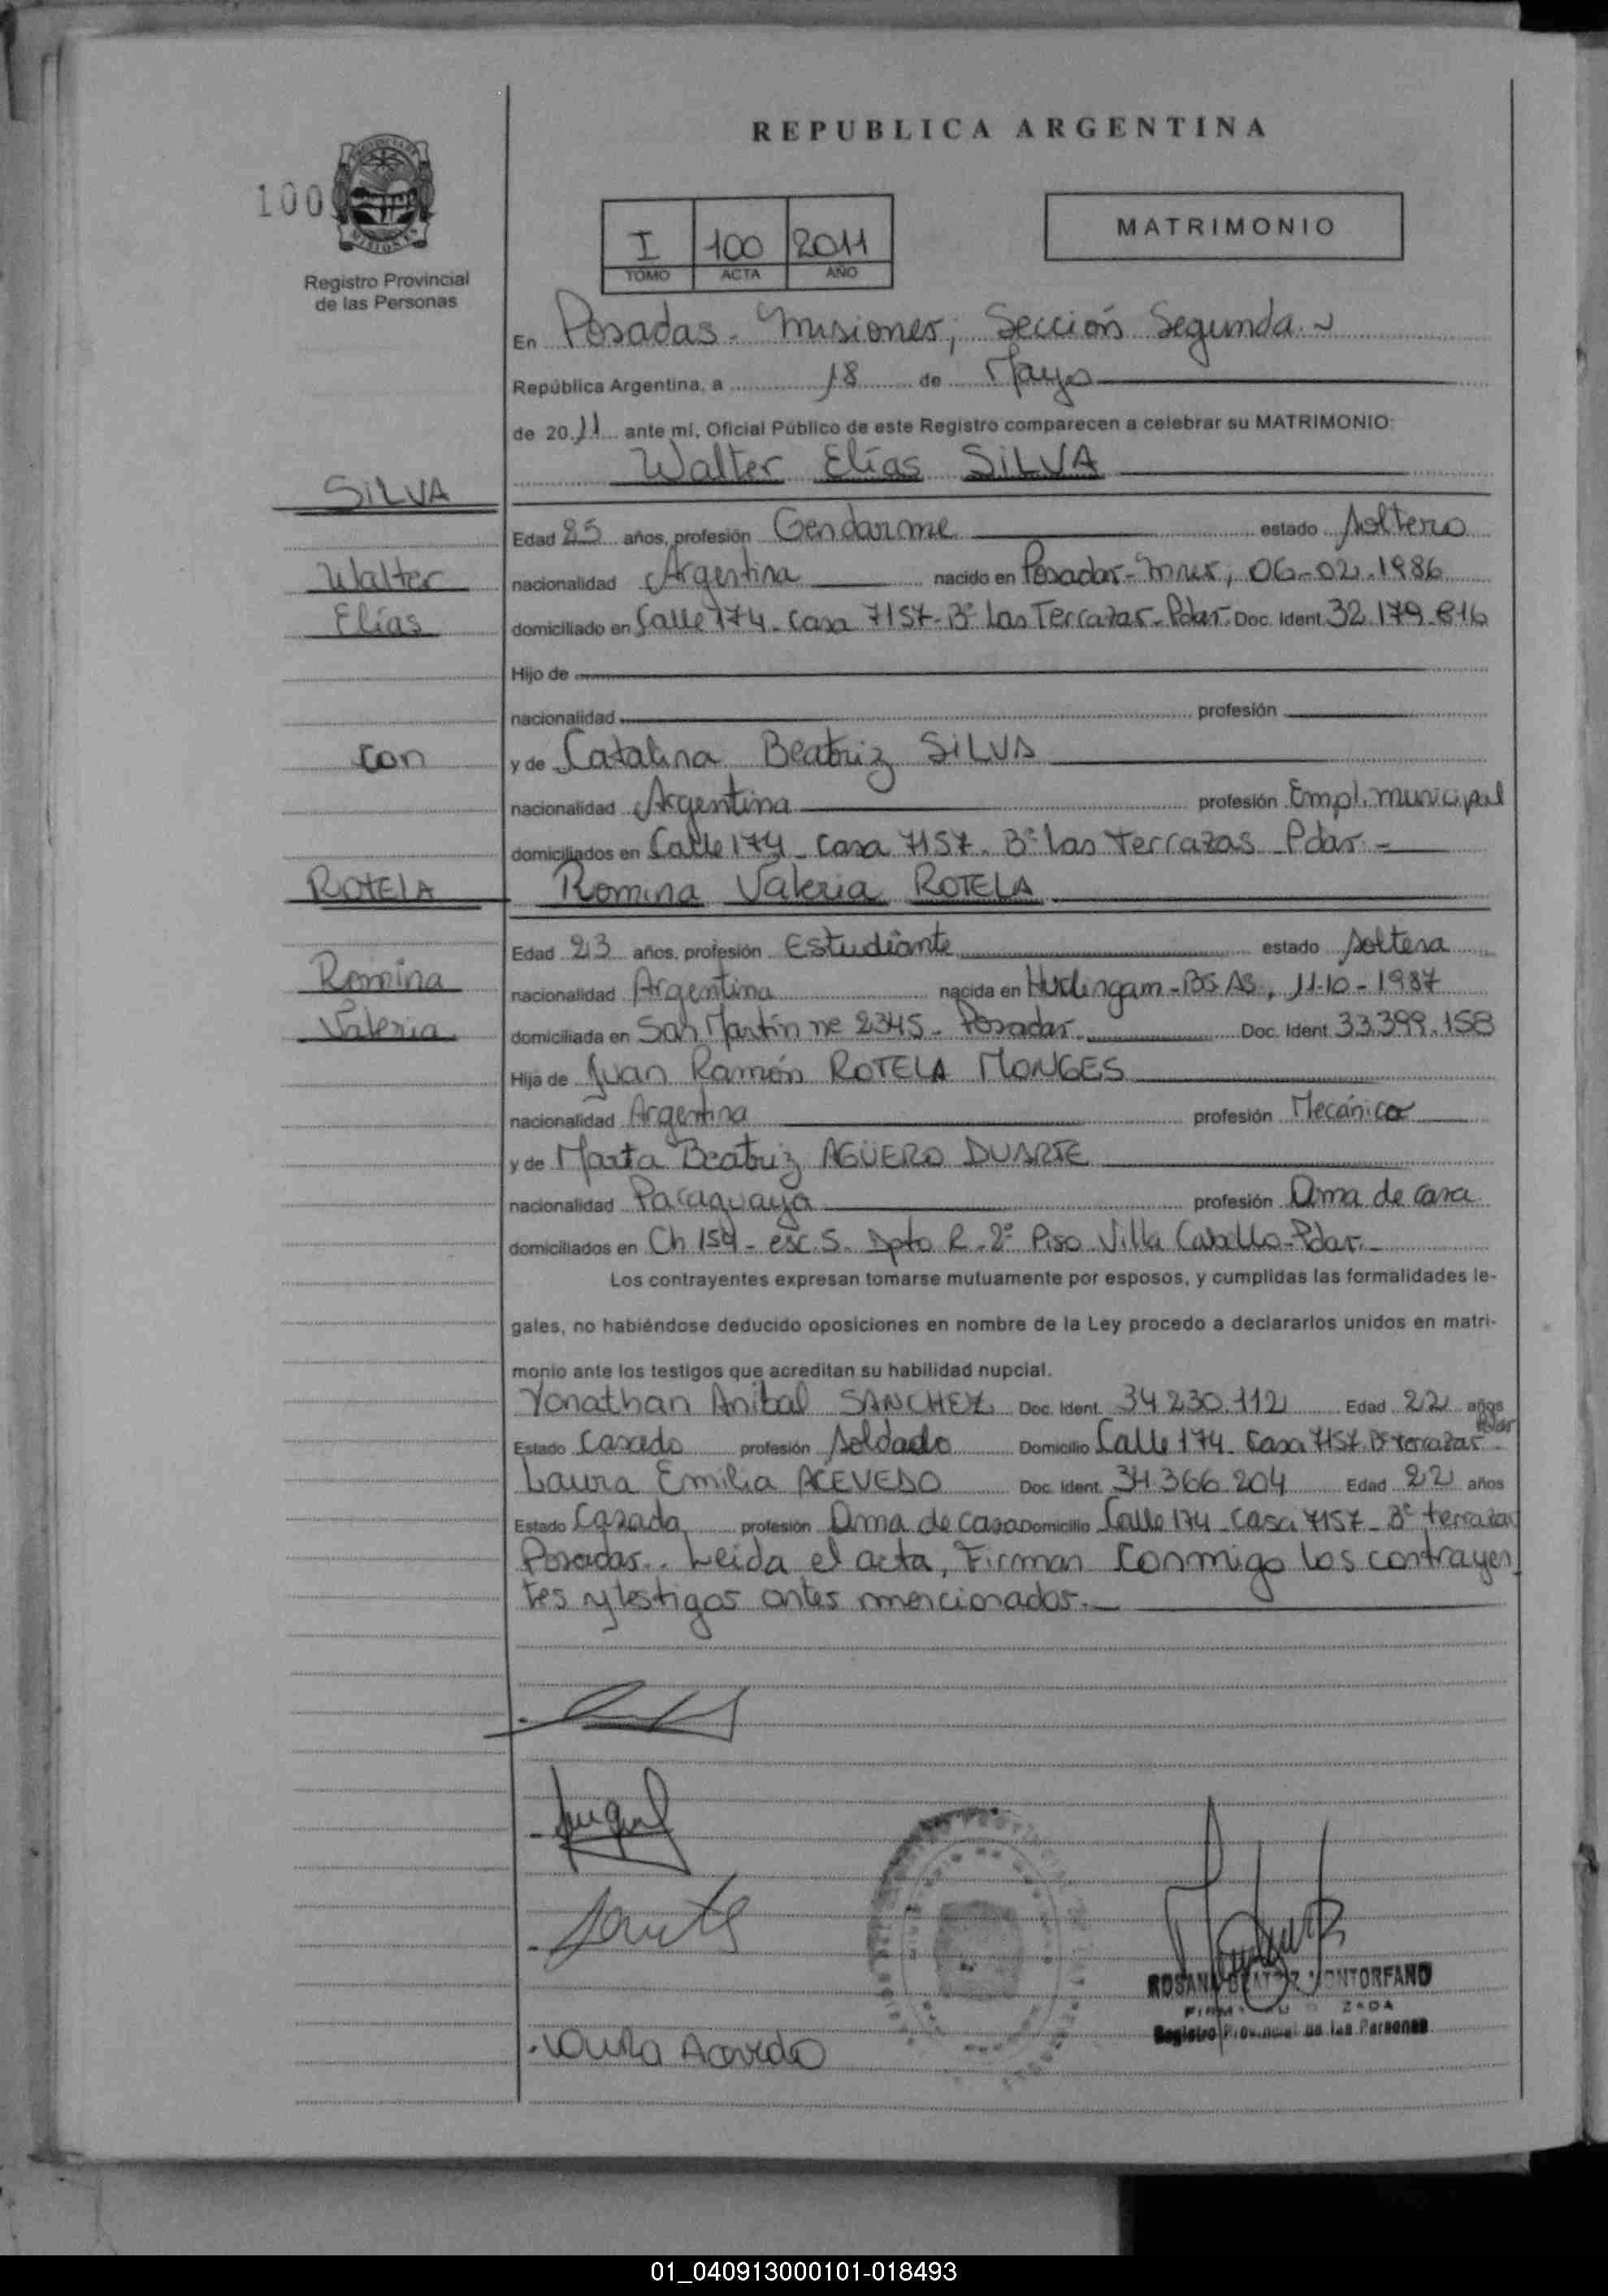 REPUBLICA ARGENTINA
100
Registro Provincial
de las Personas
I 100 2011
TOMO ACTA AÑO
MATRIMONIO
En Posadas - Misiones, Sección Segunda.
República Argentina, a 18 de Mayo
de 2011 ante mí, Oficial Público de este Registro comparecen a celebrar su MATRIMONIO:
Walter Elías SILVA
SILVA
Edad 25 años, profesión Gendarme estado Soltero
Walter
nacionalidad Argentina nacido en Posadas - Mnes, 06-02-1986
Elías
domiciliado en Calle 174 - Casa 7157 - Bº Las Terrazas - Pdas. Doc. Ident. 32.179.816
Hijo de
nacionalidad profesión
con
y de Catalina Beatriz SILVA
nacionalidad Argentina profesión Empl. municipal
domiciliados en Calle 174 - Casa 7157 - Bº Las Terrazas Pdas. -
ROTELA
Romina Valeria ROTELA
Edad 23 años, profesión Estudiante estado Soltera
Romina
nacionalidad Argentina nacida en Hurlingam - BS AS, 11-10-1987
Valeria
domiciliada en San Martín nº 2345 - Posadas Doc. Ident. 33.399.158
Hija de Juan Ramón ROTELA MONGES
nacionalidad Argentina profesión Mecánico
y de Marta Beatriz AGÜERO DUARTE
nacionalidad Paraguaya profesión Ama de casa
domiciliados en Ch 159 - esc. 5 - Dpto R - 2º Piso Villa Cabello - Pdas. -
Los contrayentes expresan tomarse mutuamente por esposos, y cumplidas las formalidades le-
gales, no habiéndose deducido oposiciones en nombre de la Ley procedo a declararlos unidos en matri-
monio ante los testigos que acreditan su habilidad nupcial.
Yonathan Anibal SANCHEZ Doc. Ident. 34.230.112 Edad 22 años
Estado Casado profesión Soldado Domicilio Calle 174 - Casa 7157 Bº terrazas - Pdas
Laura Emilia ACEVEDO Doc. Ident. 34.366.204 Edad 22 años
Estado Casada profesión Ama de casa Domicilio Calle 174 - Casa 7157 - Bº terrazas
Posadas.. Leida el acta, Firman Conmigo los contrayen
tes y testigos antes mencionados. -
Laura Acevedo
ROSANA BEATRIZ MONTORFANO
Registro Provincial de las Personas
01_040913000101-018493